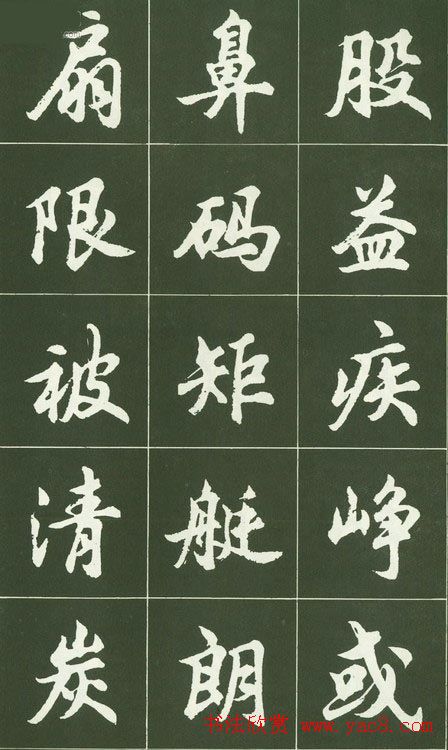 股益疾峥或
鼻码矩艇朗
扇限被清炭
书法欣赏 www.yac8.com